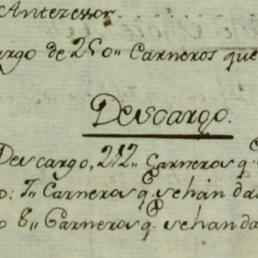 Antezessor
argo de 250" Carneros que
Descargo.
Descargo, 212" Carneros q.e
o: 7" Carneros q.e se han da
o 8" Carneros q. se han da